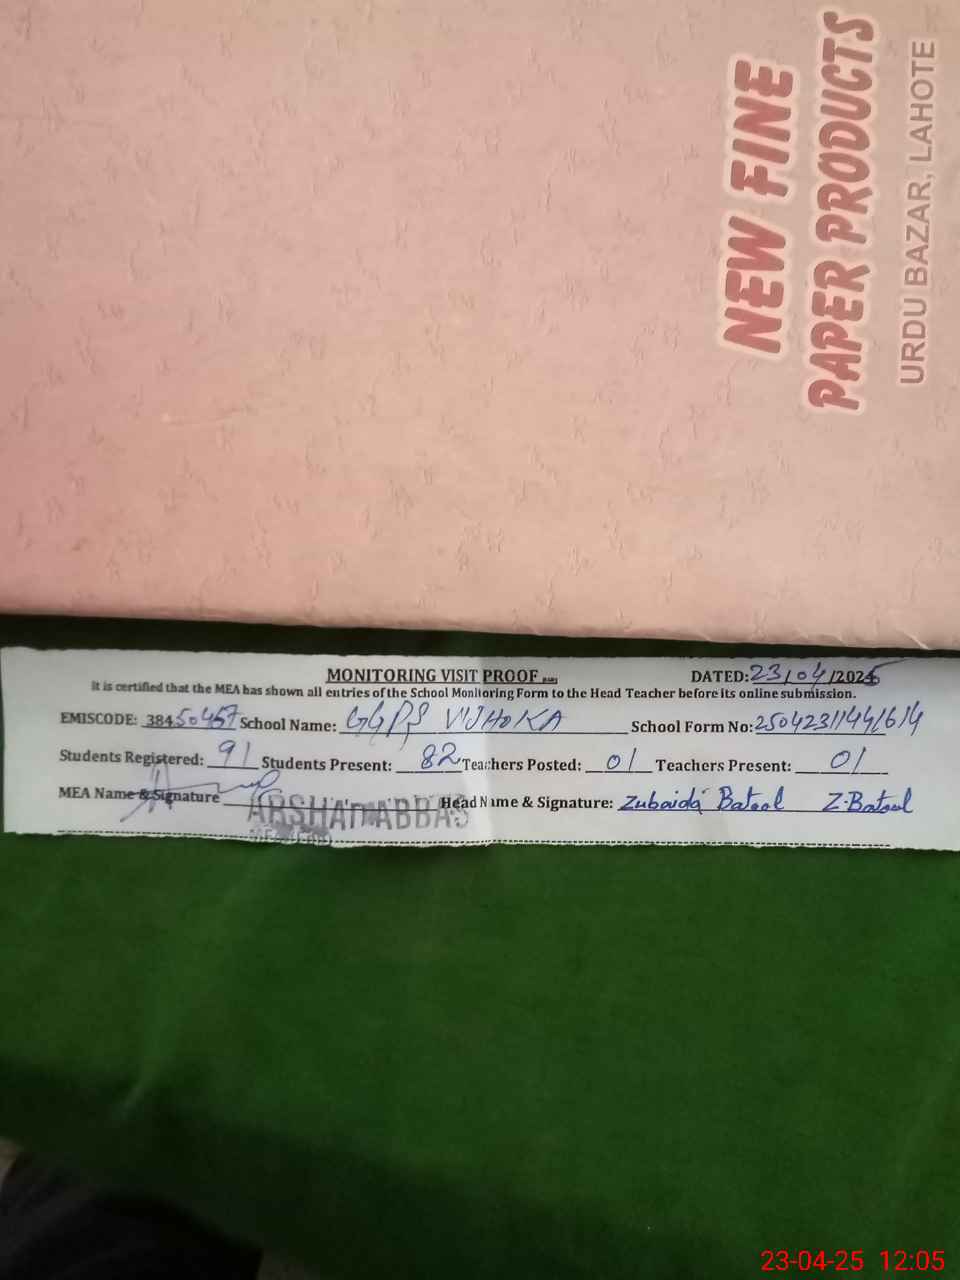 NEW FINE
PAPER PRODUCTS
URDU BAZAR, LAHOTE
MONITORING VISIT PROOF DATED:23/04/2025
It is certified that the MEA has shown all entries of the School Monitoring Form to the Head Teacher before its online submission.
EMISCODE: 38450457 School Name: GGPS VIJHOKA School Form No:
Students Registered: 91 Students Present: 82 Teachers Posted: 01 Teachers Present: 01
MEA Name & Signature ARSHAD ABBAS Head Name & Signature: Zubaida Batool Z.Batool
23-04-25 12:05